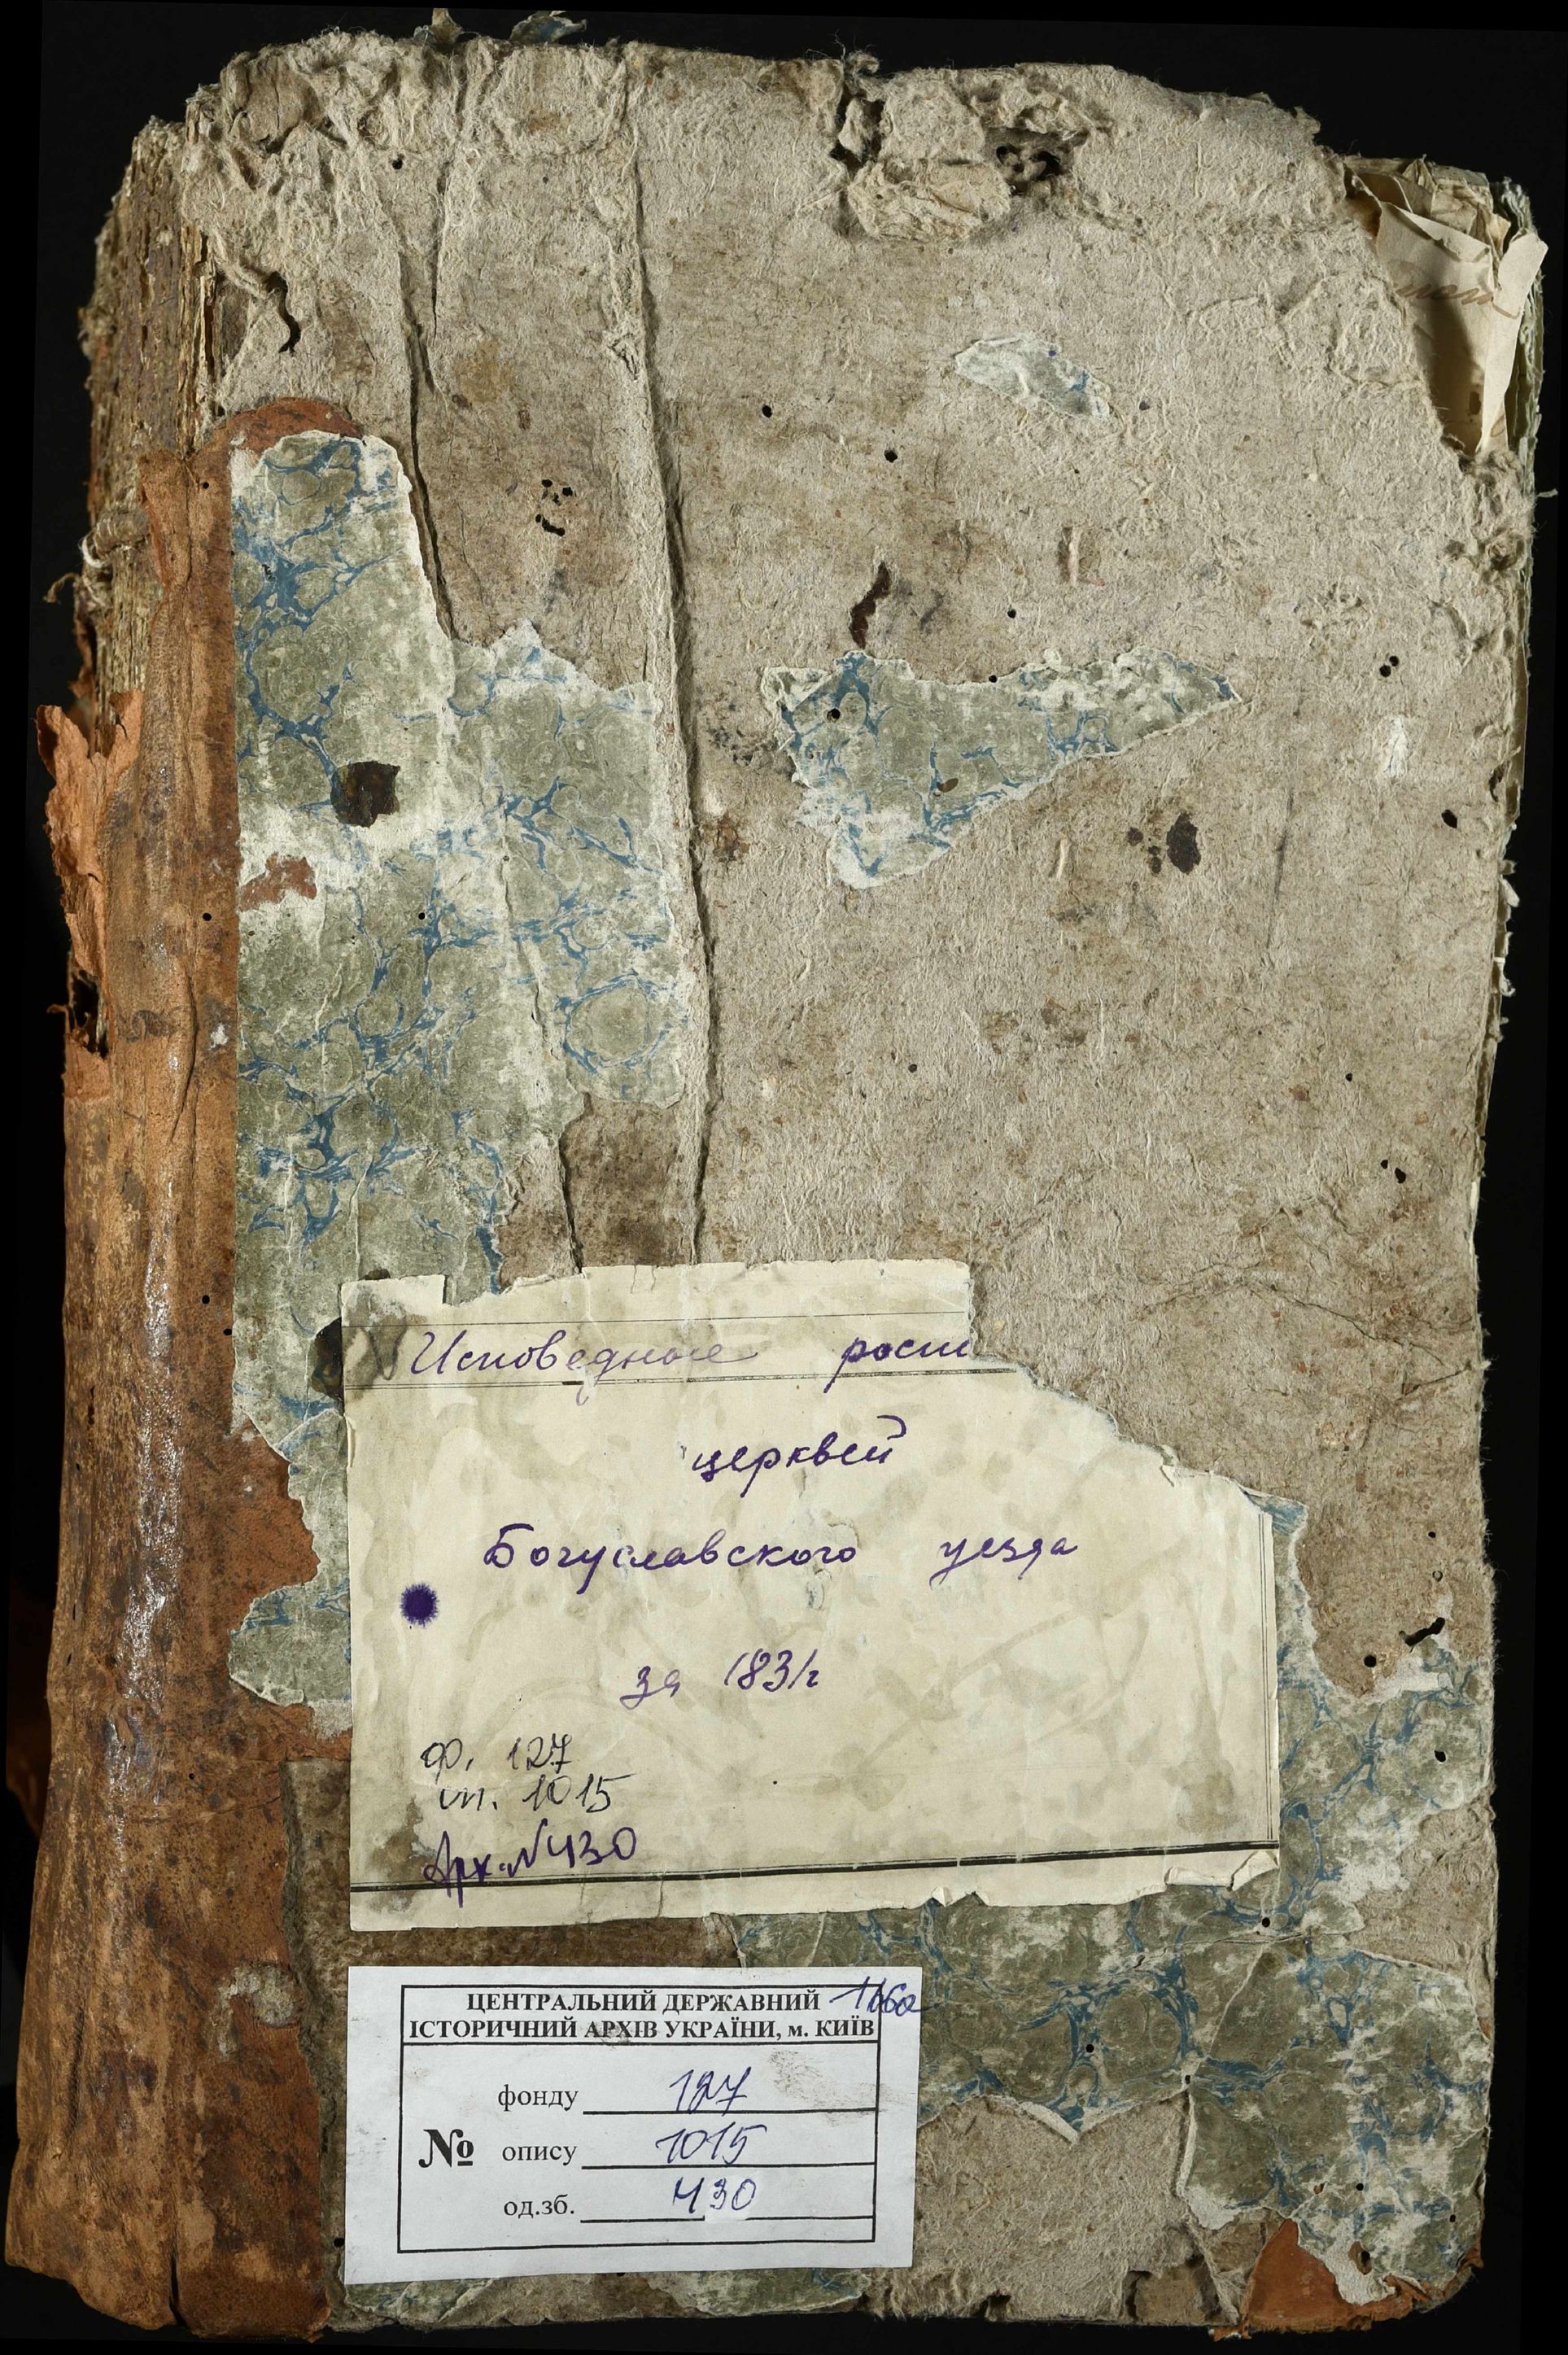 Исповедные роспи
церквей
Богуславского уезда
за 1831г
ф. 127
оп. 1015
Арк. № 430
ЦЕНТРАЛЬНИЙ ДЕРЖАВНИЙ
ІСТОРИЧНИЙ АРХІВ УКРАЇНИ, м. КИЇВ
фонду 127
№ опису 1015
од.зб. 430